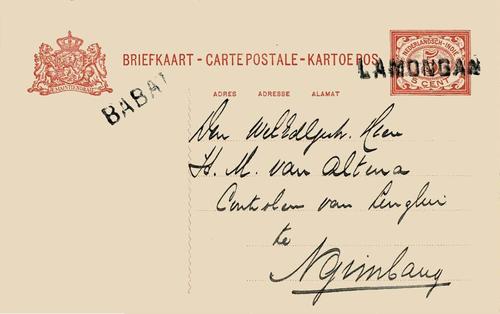 BRIEFKAART - CARTE POSTALE - KARTOE POS
NEDERLANDSCH-INDIË
5
5 CENT
LAMONGAN
BABAT
ADRES ADRESSE ALAMAT
Den WelEdlgestr. Heer
H. M. van Altena
Controleur van
te
Ngimbang